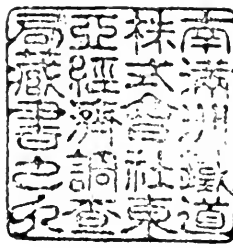 南滿洲鐵道
株式會社東
亞經濟調查
局藏書之印